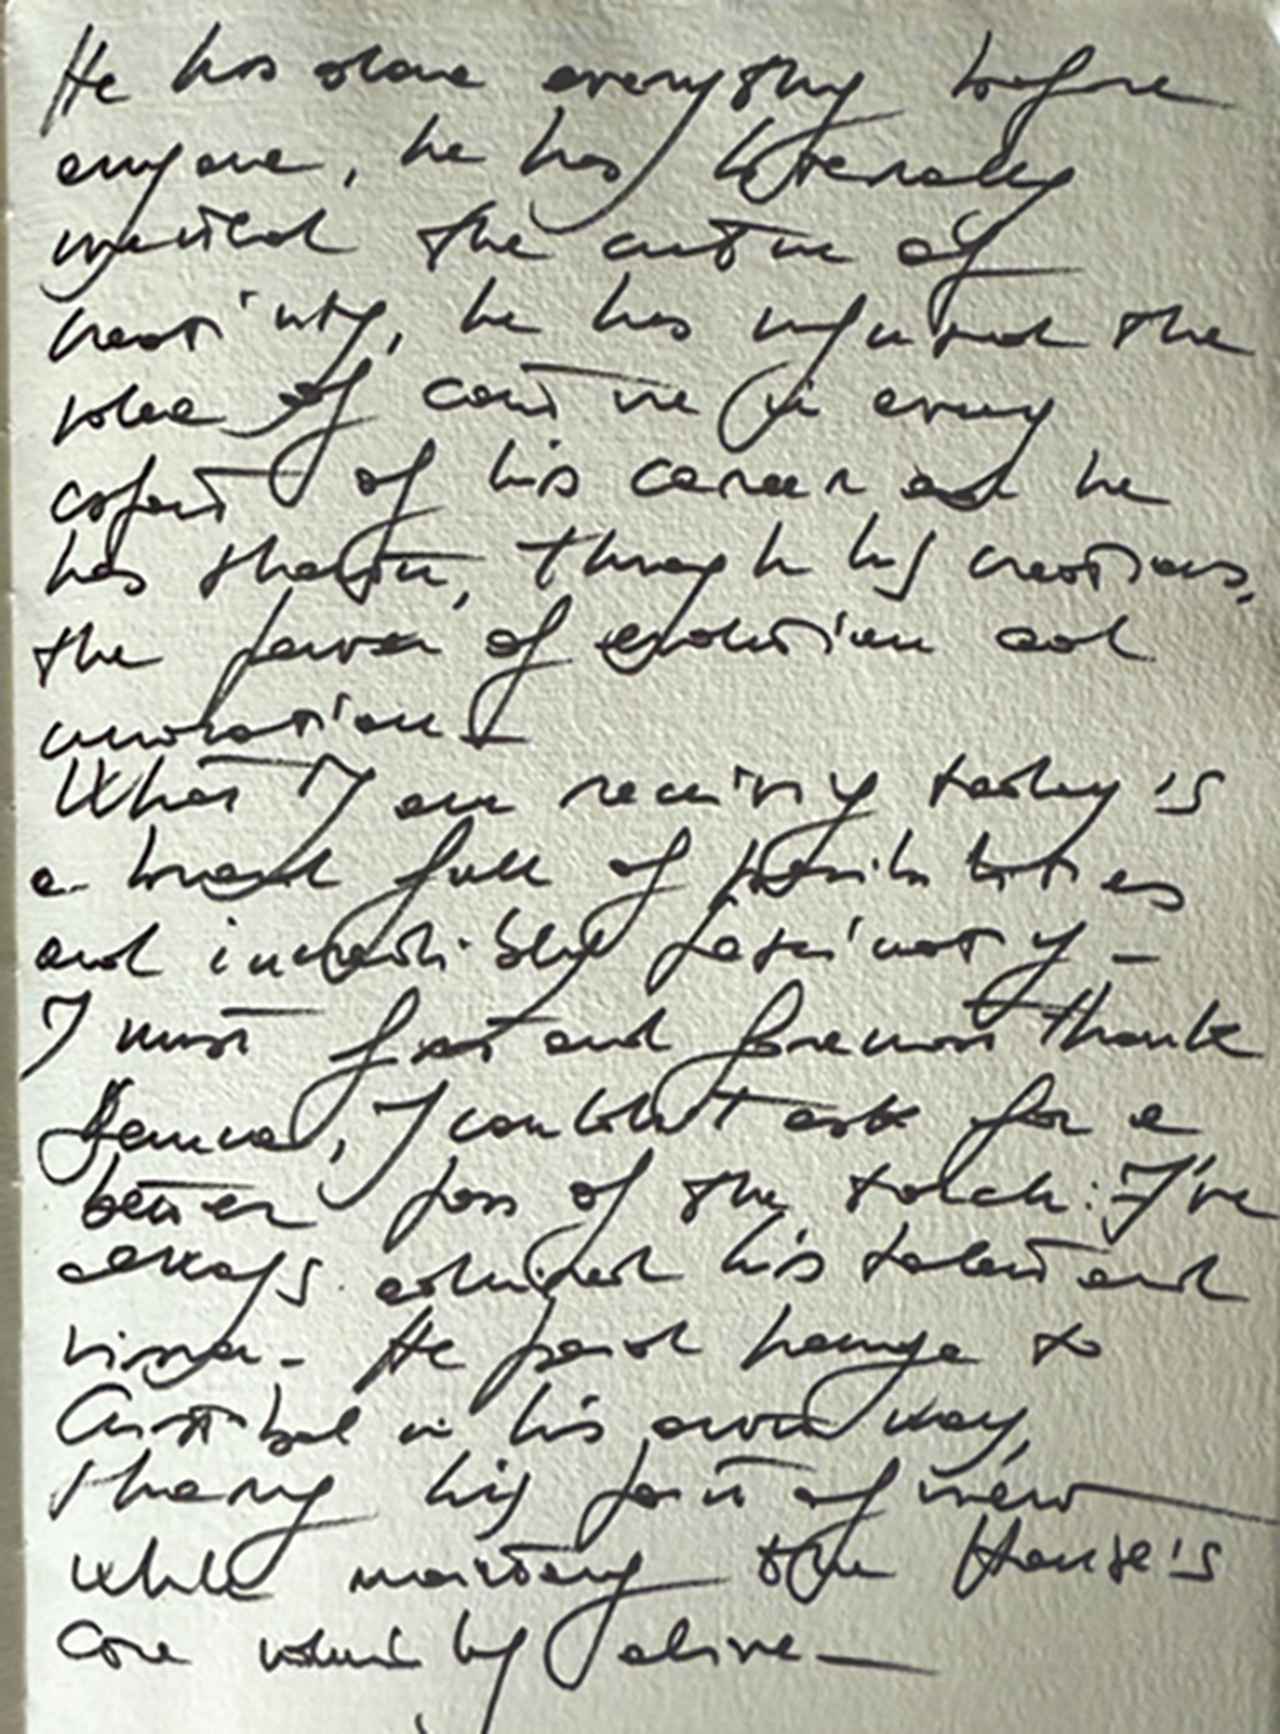 He has done everything before
anyone, he has literally
invented the culture of
creativity, he has infused the
idea of couture in every
aspect of his career and he
has shown, through his creations,
the power of evolution and
innovation_
What I am receiving today is
a brand full of possibilities
and incredibly fascinating_
I must first and foremost thank
I couldn't ask for a
better pass of the torch: I've
always admired his talent and
vision_ He paid homage to
Cristóbal in his own way,
sharing his point of view
while maintaining the House's
core alive_